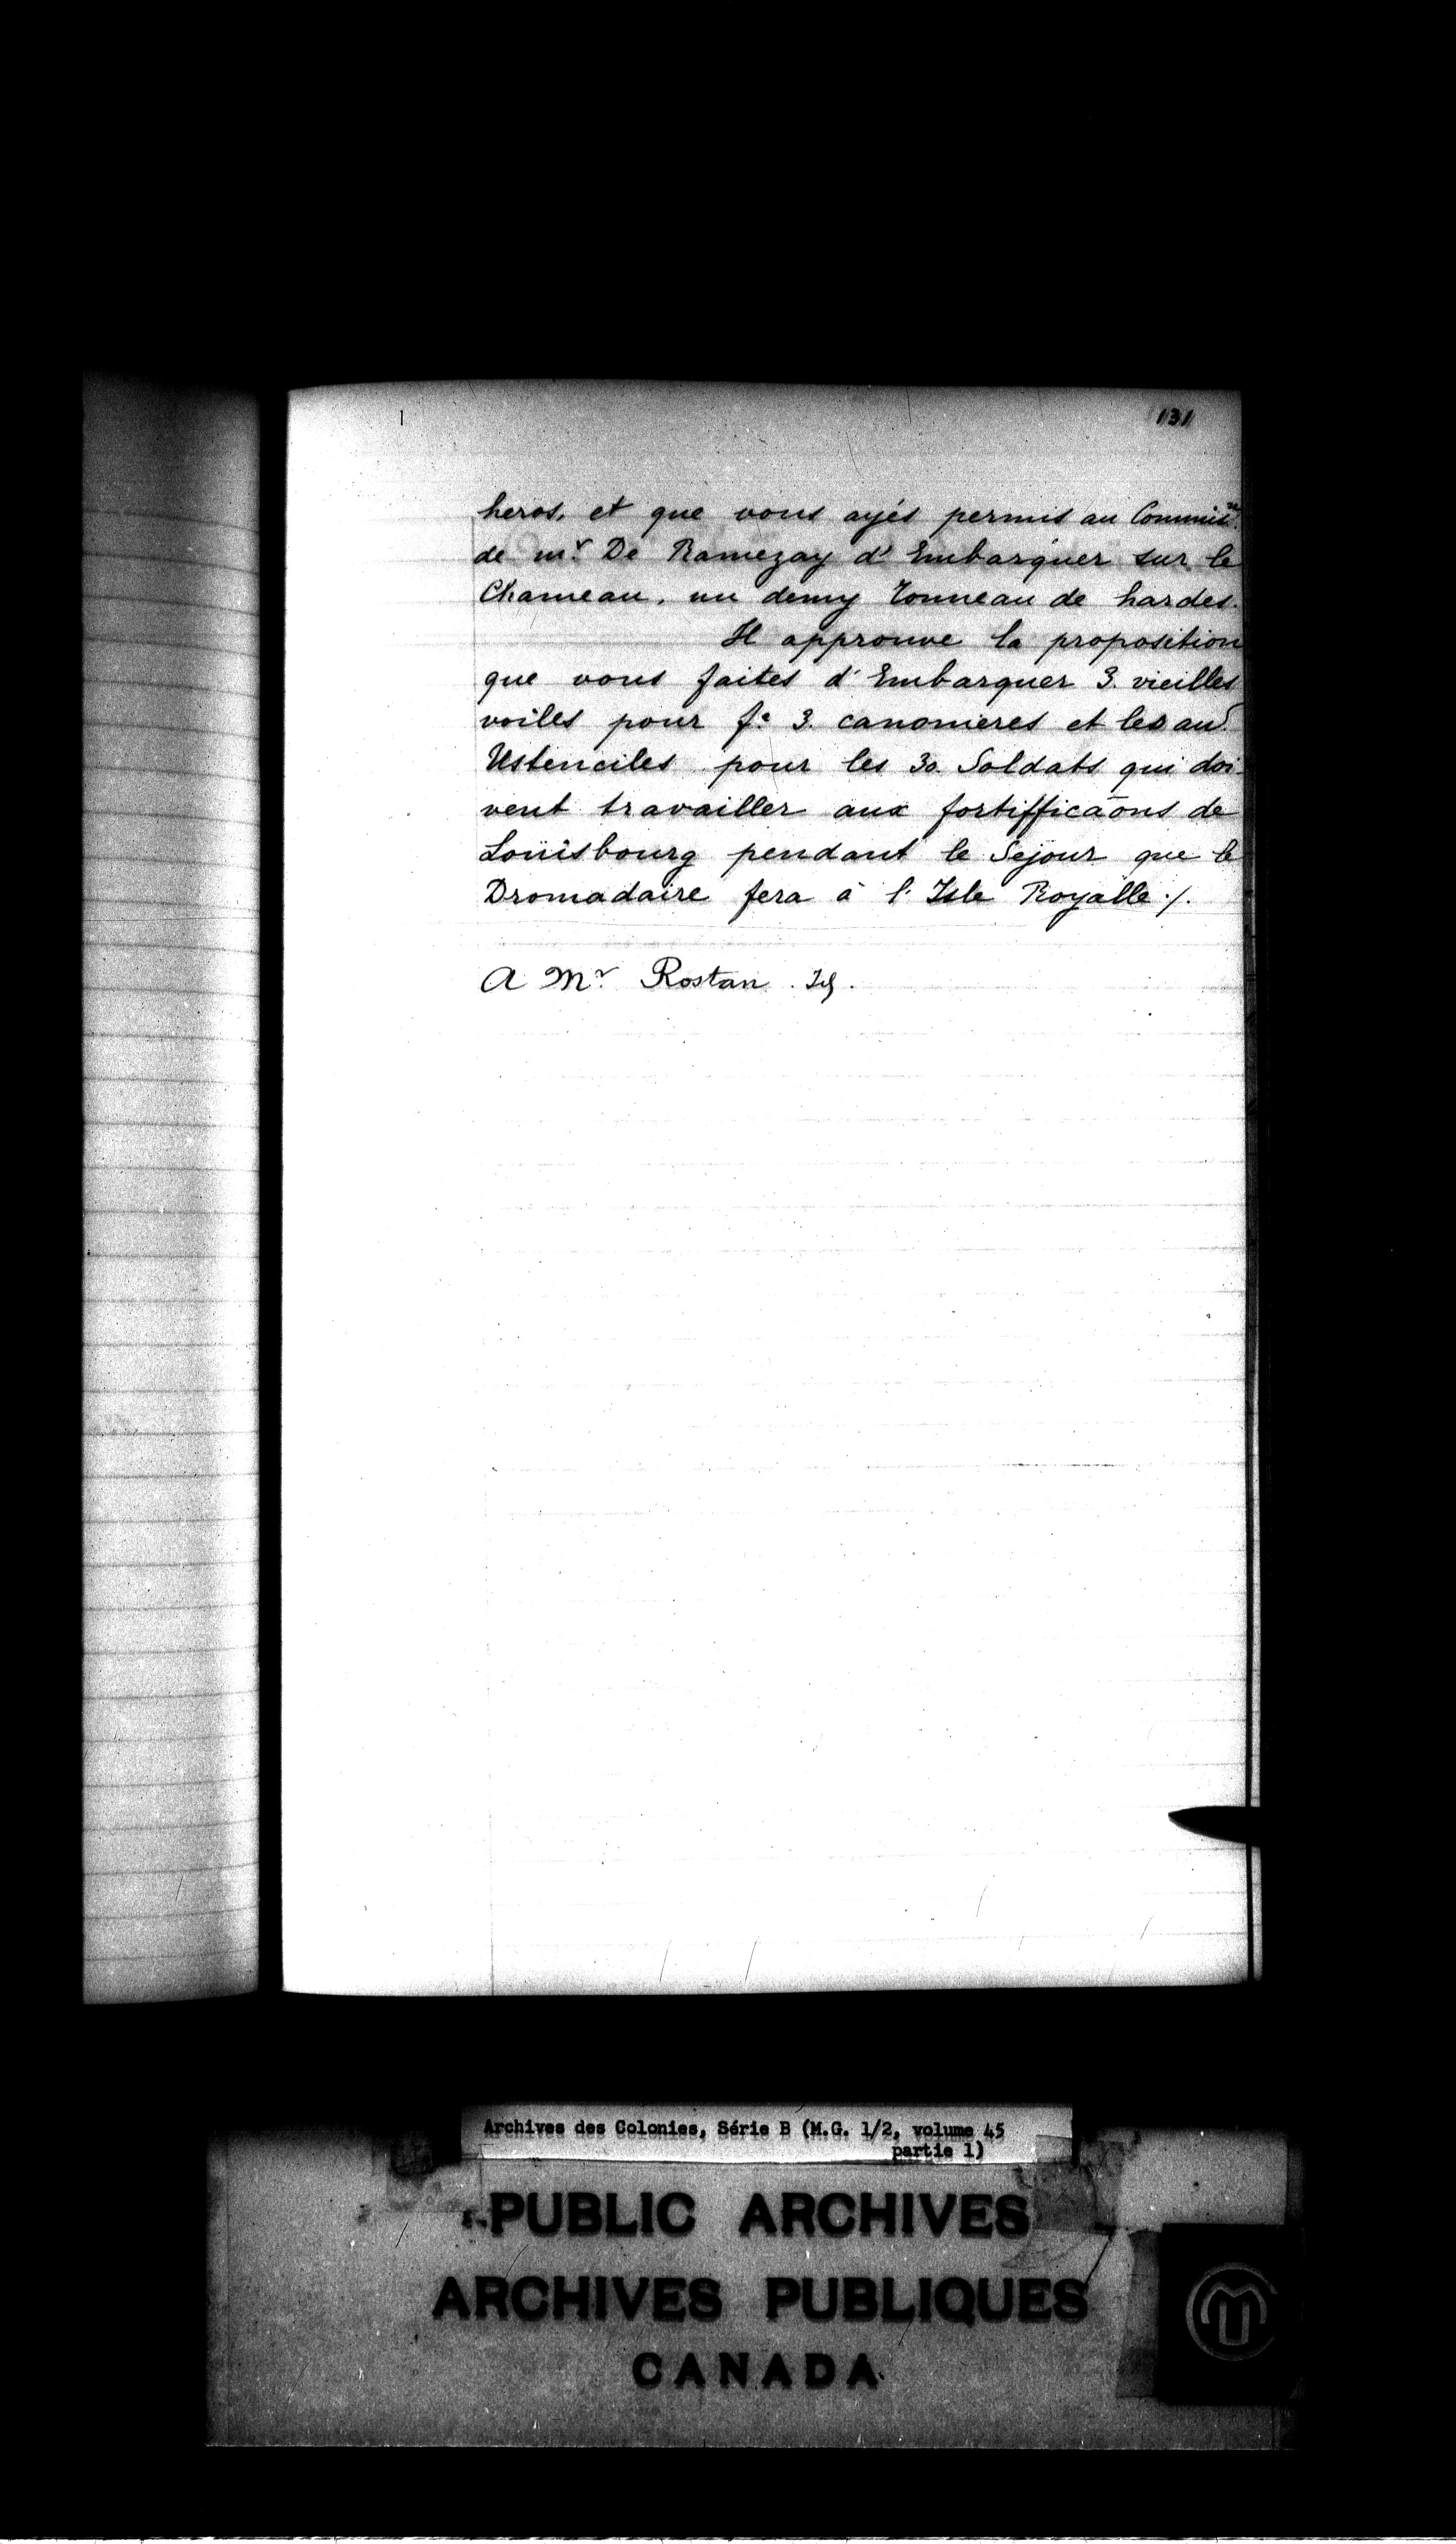 131
heros, et que vous ayés permis au Commis.re
de mr. De Ramezay d'Embarquer sur le
Chameau, un demy Tonneau de hardes.
Il approuve la proposition
que vous faites d'Embarquer 3. vieilles
voiles pour fe. 3. canonieres et les au.s
Ustenciles pour les 30. Soldats qui doi-
vent travailler aux fortifficaons de
Loüisbourg pendant le Sejour que le
Dromadaire fera à l'Isle Royalle ./.
A Mr. Rostan.
Archives des Colonies, Série B (M.G. 1/2, volume 45
partie 1)
PUBLIC ARCHIVES
ARCHIVES PUBLIQUES
CANADA